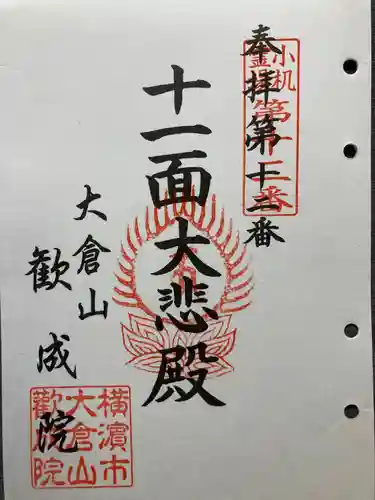 奉拝第十二番
小机
霊場
第十二番
十一面大悲殿
大倉山
歓成院
横濱市
大倉山
歓成院